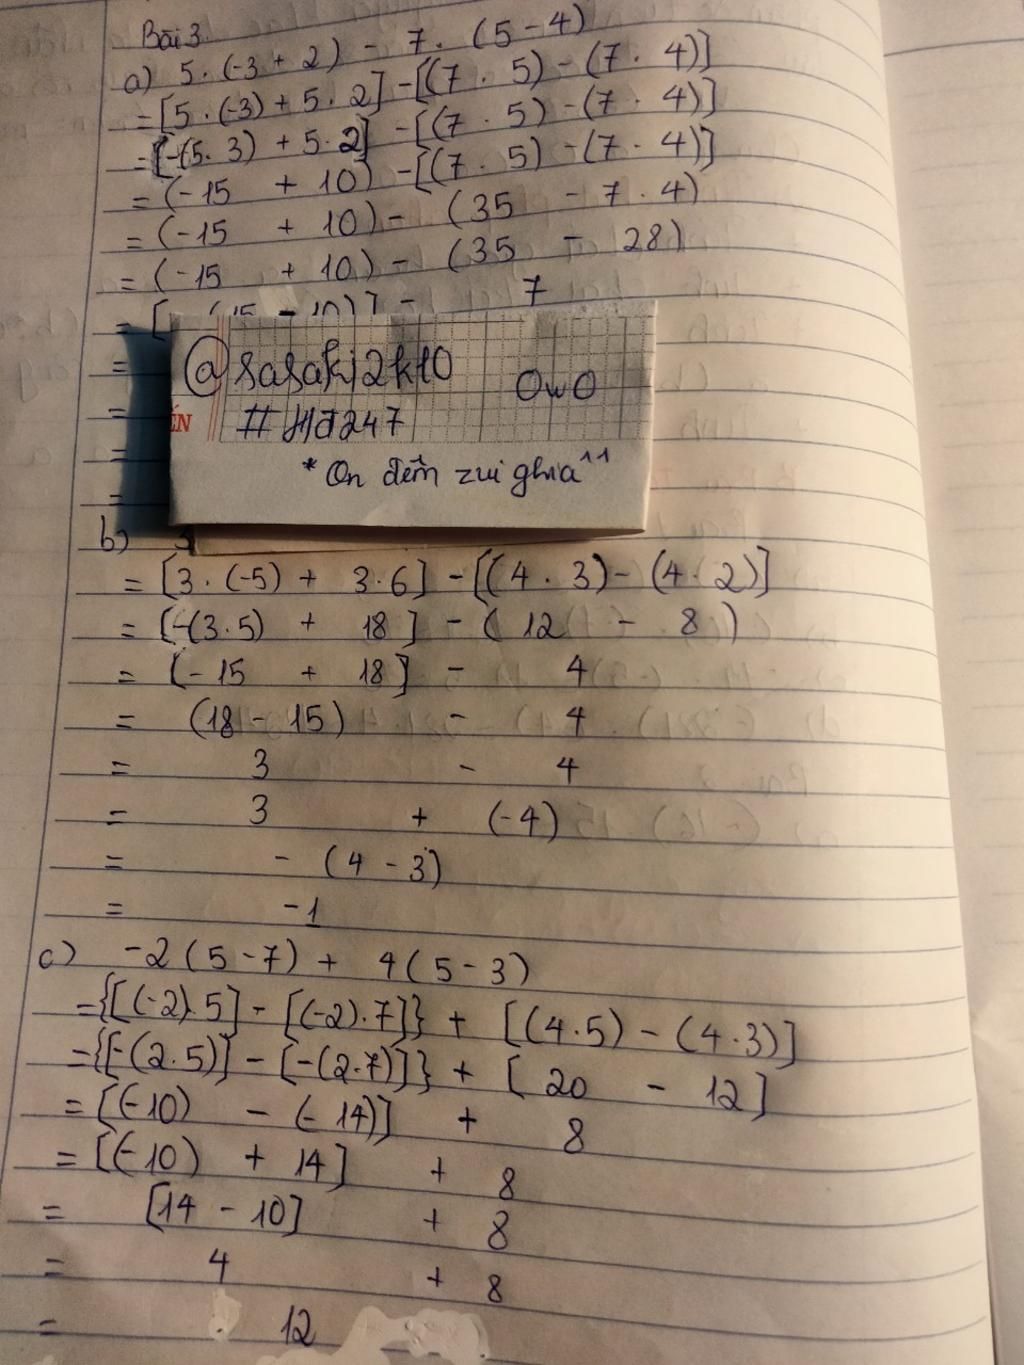 Bài 3.
a) 5 . (-3 + 2) - 7 . (5 - 4)
= [5 . (-3) + 5 . 2] - [(7 . 5) - (7 . 4)]
= [-(5 . 3) + 5 . 2] - [(7 . 5) - (7 . 4)]
= (-15 + 10) - [(7 . 5) - (7 . 4)]
= (-15 + 10) - (35 - 7 . 4)
= (-15 + 10) - (35 - 28)
= [ (15 - 10)] - 7
=
@sasaki2k10 OwO
=
ẾN # Hđ247
=
* On đêm zui ghia ^^
=
b) 3
= [3 . (-5) + 3 . 6] - [(4 . 3) - (4 . 2)]
= [-(3 . 5) + 18 ] - ( 12 - 8 )
= [-15 + 18] - 4
= (18 - 15) - 4
= 3 - 4
= 3 + (-4)
= - (4 - 3)
= -1
c) -2 (5 - 7) + 4 (5 - 3)
= {[(-2) . 5] - [(-2) . 7]} + [(4 . 5) - (4 . 3)]
= {[-(2 . 5)] - [-(2 . 7)]} + [ 20 - 12 ]
= [(-10) - (-14)] + 8
= [(-10) + 14] + 8
= [14 - 10] + 8
= 4 + 8
= 12